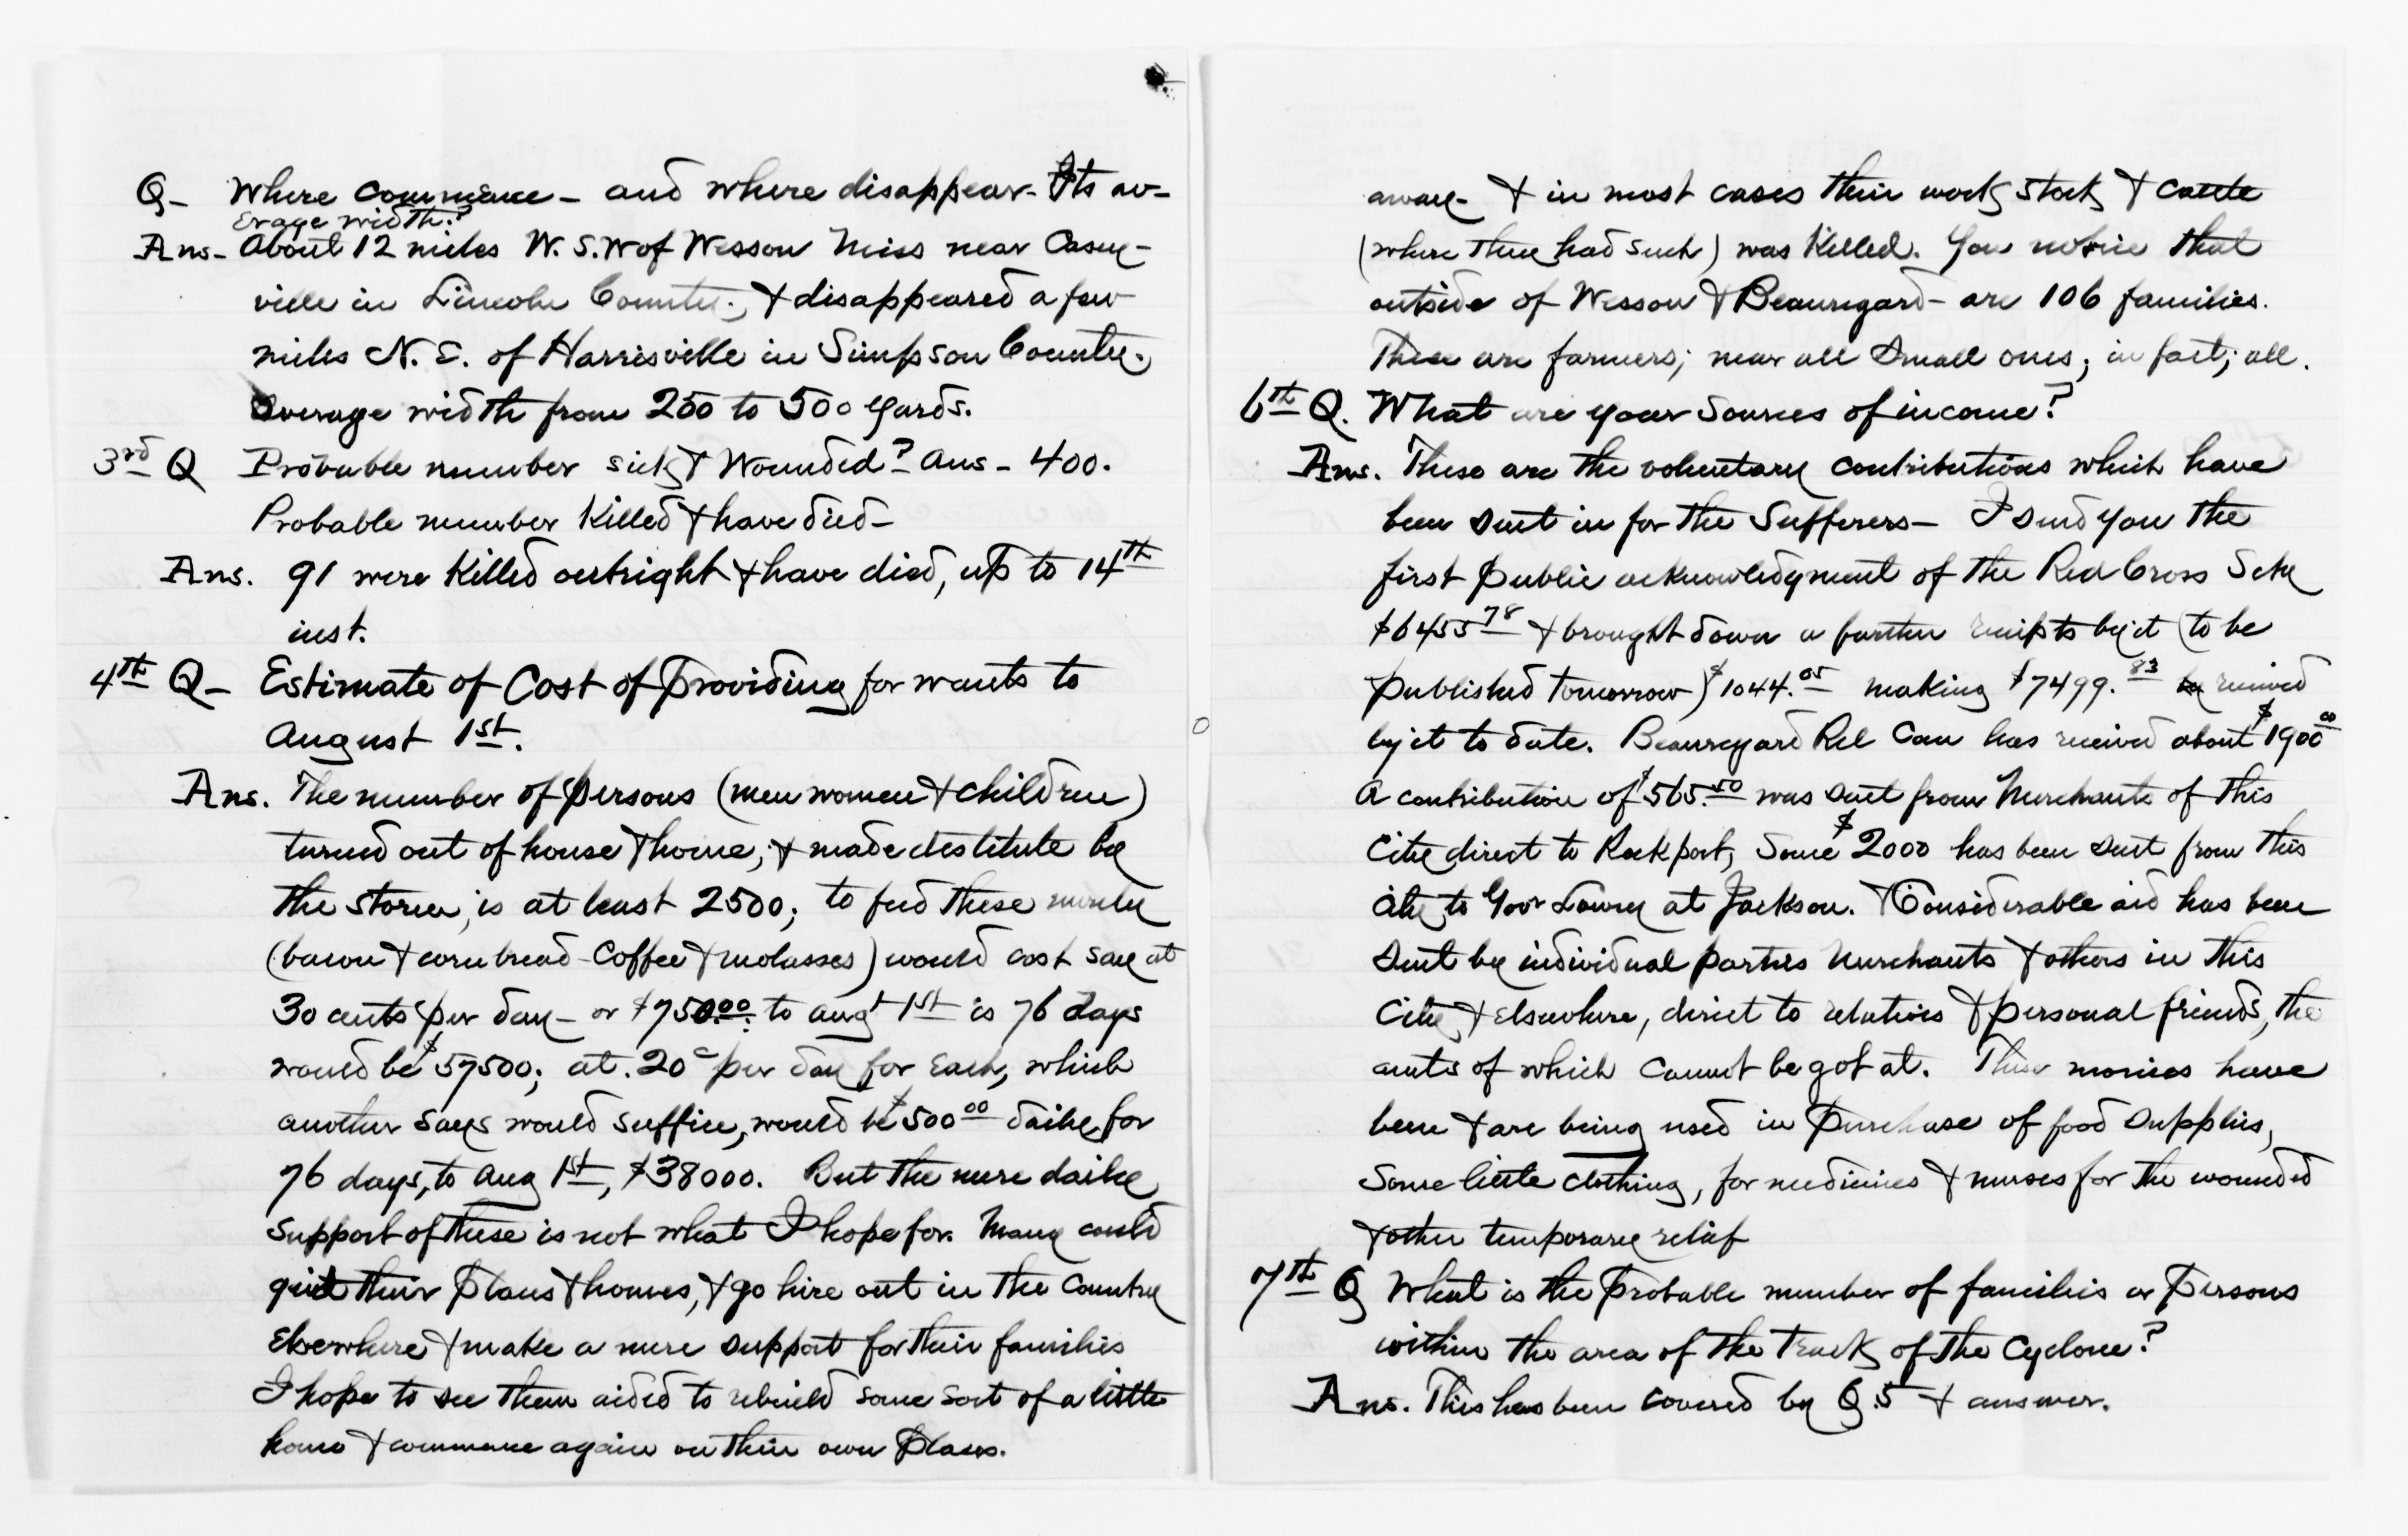 Q- Where commence - and where disappear - Its av-
erage width?
Ans - About 12 miles W.S.W of Wesson Miss near Casey-
ville in Lincoln County, & disappeared a few
miles N.E. of Harrisville in Simpson County.
average width from 250 to 500 yards.
3rd Q Probable number sick & Wounded? Ans - 400.
Probable number Killed & have died -
Ans. 91 were Killed outright & have died, up to 14th
inst.
4th Q- Estimate of Cost of providing for wants to
August 1st.
Ans. The number of persons (men women & children)
turned out of house & home, & made destitute by
the storm, is at least 2500; to feed these merely
(bacon & corn bread - Coffee & molasses) would cost say at
30 cents per day - or $750.00: to augt 1st is 76 days
would be $57500; at .20c per day for each, which
another says would suffice, would be $500 00 daily, for
76 days, to Aug 1st, $38000. But the mere daily
support of these is not what I hope for. Many could
quit their places & homes, & go hire out in the country
Elsewhere & make a mere support for their families
I hope to see them aided to rebuild some sort of a little
home & commence again on their own places.
away - & in most cases their work stock & cattle
(where they had such) was Killed. You notice that
outside of Wesson & Beauregard - are 106 families.
These are farmers; near all small ones; in fact, all.
6th Q. What are your sources of income?
Ans. These are the voluntary contributions which have
been sent in for the Sufferers - I send you the
first public acknowledgment of the Red Cross Scty
$6455 78 & brought down a further receipts by it (to be
published tomorrow) $1044.05 making $7499.83 received
by it to date. Beauregard Rel Com has received about $1900 00
A contribution of $565.50 was sent from Merchants of this
City direct to Rockport, Some $2000 has been sent from this
city to Govr Lowry at Jackson. & Considerable aid has been
sent by individual parties Merchants & others in this
City & Elsewhere, direct to relatives & personal friends, the
amts of which cannot be got at. These monies have
been & are being used in purchase of food supplies,
some little clothing, for medicines & nurses for the wounded
& other temporary relief
7th Q What is the Probable number of families or Persons
within the area of the track of the Cyclone?
Ans. This has been covered by Q.5 & answer.